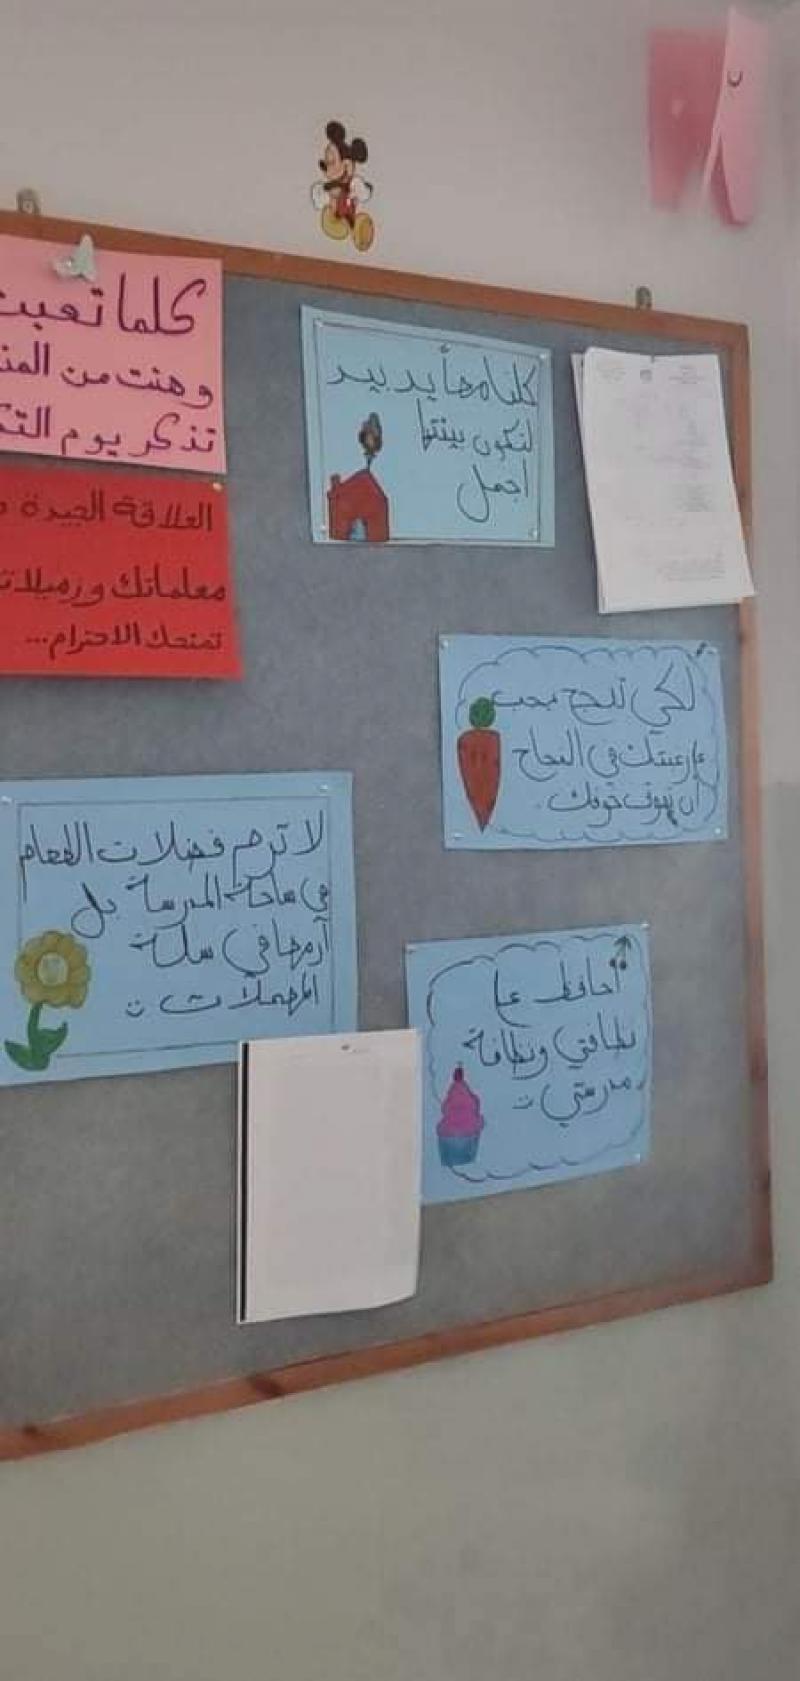 كلما تعبت
وهنت من
تذكر يوم
العلاقة الجيدة
معلماتك وزميلاتك
تمنحك الاحترام...
كلنا معاً يد بيد
لتكون بيئتنا
اجمل
لكي تنجح يجب
رغبتك في النجاح
أن تفوق خوفك.
لا ترم فضلات الطعام
في ساحة المدرسة بل
أرمها في سلة
المهملات
احافظ على
نظافتي ونظافة
مدرستي